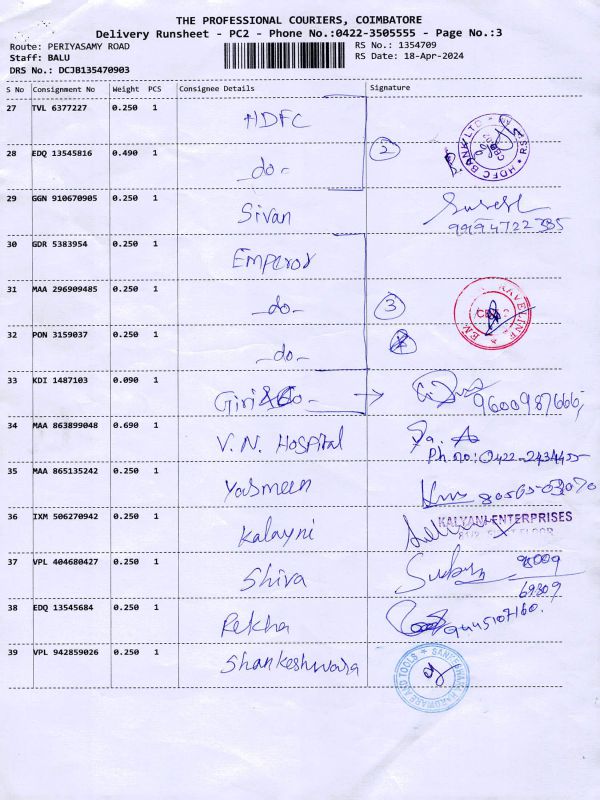 THE PROFESSIONAL COURIERS, COIMBATORE
Delivery Runsheet - PC2 - Phone No.:0422-3505555 - Page No.:3
Route: PERIYASAMY ROAD RS No.: 1354709
Staff: BALU RS Date: 18-Apr-2024
DRS No.: DCJB135470903
S No Consignment No Weight PCS Consignee Details Signature
27 TVL 6377227 0.250 1 HDFC
28 EDQ 13545816 0.490 1 -do- 2 HDFC BANK LTD
29 GGN 910670905 0.250 1 Sivan Suresh
9994722385
30 GDR 5383954 0.250 1 Emperor
31 MAA 296909485 0.250 1 -do- 3
32 PON 3159037 0.250 1 -do-
33 KDI 1487103 0.090 1 Giri 9600987666
34 MAA 863899048 0.690 1 V.N. Hospital
Ph.no: 0422-2434455
35 MAA 865135242 0.250 1 Yasmeen
36 IXM 506270942 0.250 1 Kalayni KALYANI ENTERPRISES
37 VPL 404680427 0.250 1 Shiva 98009
69309
38 EDQ 13545684 0.250 1 Rekha 9445107160.
39 VPL 942859026 0.250 1 Shankeshwara HARDWARE AND TOOLS